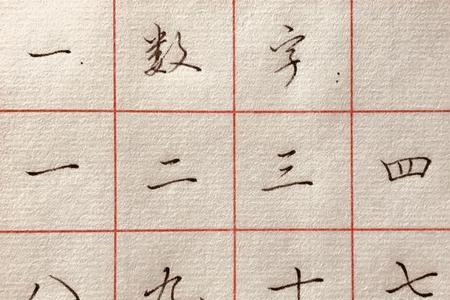 一.数字:
一二三四
八九十七